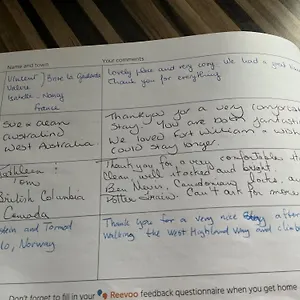 Name and town
Your comments
Vincent / Brise la
Valerie
Isabelle - Nancy
France
Lovely place and very cosy. We had a great
Thank you for everything
Sue & dean
australind
West Australia.
Thankyou for a very comfortable
stay. You are both fantastic
We loved Fort William & wish
could stay longer.
Kathleen &
Tom
British Columbia
Canada
Thank you for a very comfortable
Clean, well stocked and bright.
Ben Nevis, locks, a
Potter train. Can't ask for more
and Tormod
Oslo, Norway
Thank you for a very nice stay after
walking the West Highland Way and climb
Don't forget to fill in your Reevoo feedback questionnaire when you get home